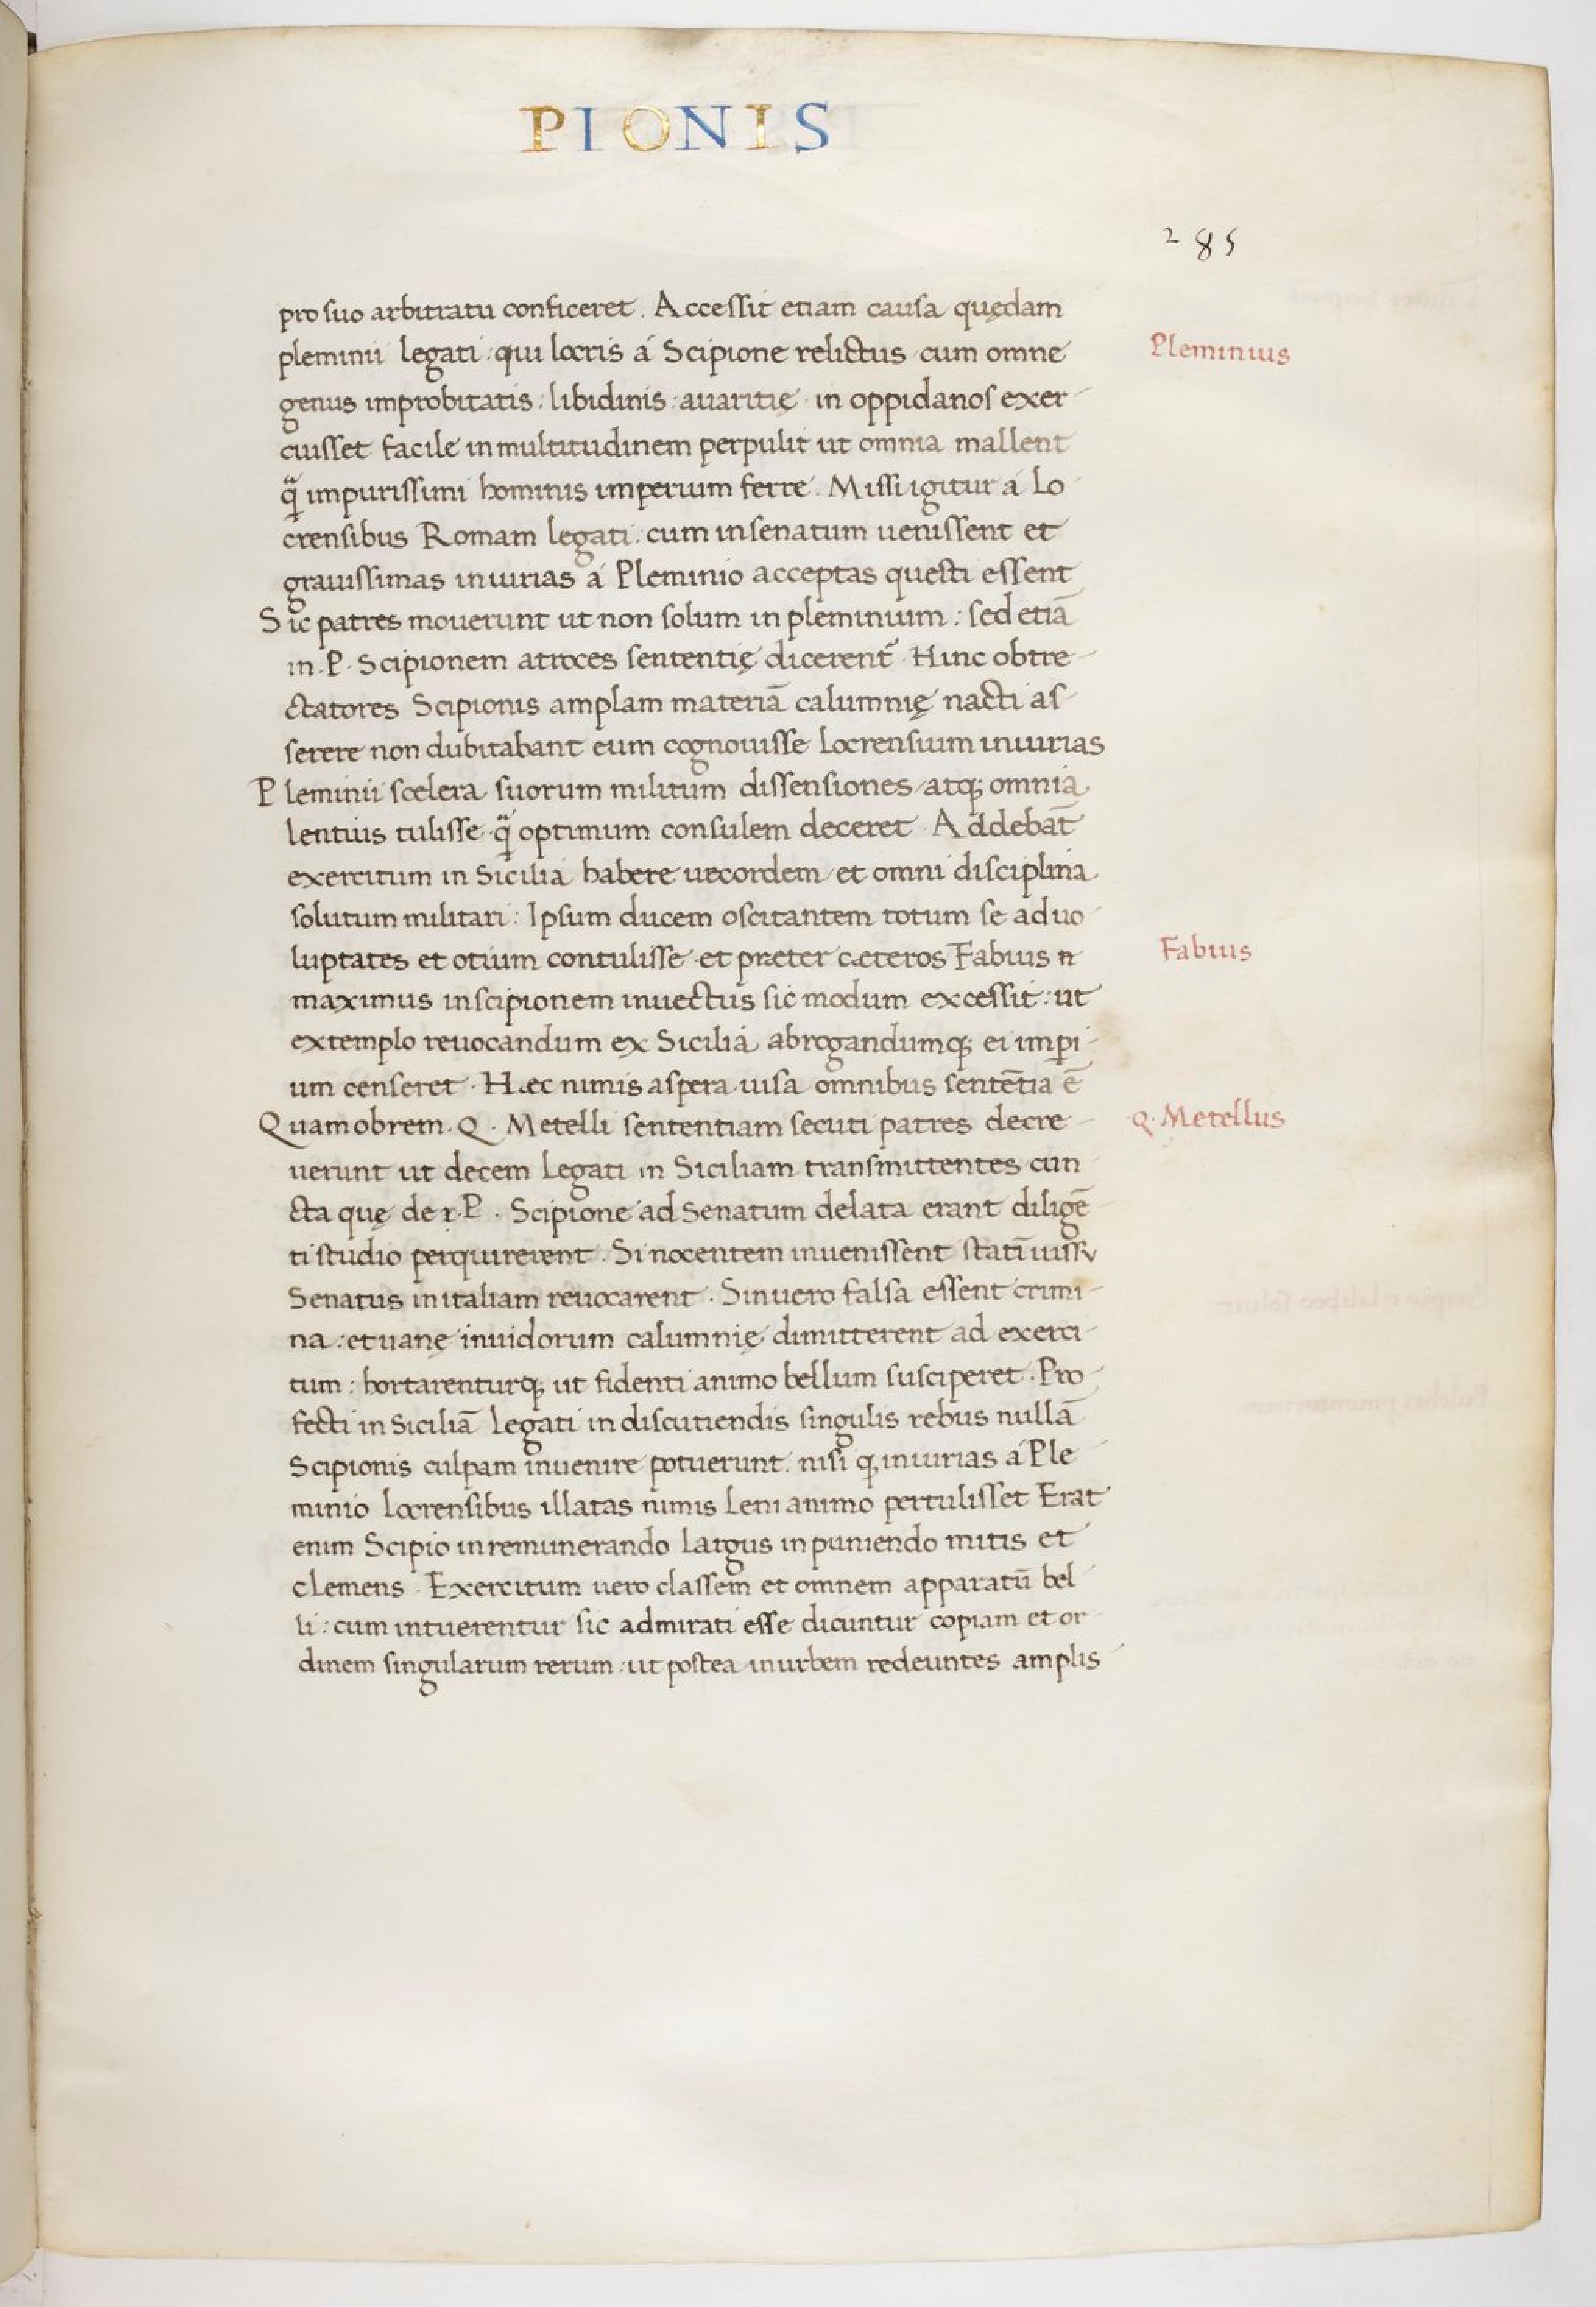 PIONIS
285
pro suo arbitratu conficeret. Accessit etiam causa quędam
pleminii legati: qui locris á Scipione relictus cum omne
Pleminius
genus improbitatis: libidinis: auaritię in oppidanos exer-
cuisset facile in multitudinem perpulit ut omnia mallent
q̃ impurissimi hominis imperium ferre. Missi igitur á Lo-
crensibus Romam legati: cum in senatum uenissent et
grauissimas iniurias á Pleminio acceptas questi essent
Sic patres mouerunt ut non solum in pleminium: sed etiā
in .P. Scipionem atroces sententię dicerent᷑. Hinc obtre-
ctatores Scipionis amplam materiā calumnię nacti as-
serere non dubitabant eum cognouisse Locrensium iniurias
Pleminii scelera suorum militum dissensiones / atq; omnia
lentius tulisse q̃ optimum consulem deceret. Addebāt
exercitum in Sicilia habere uecordem / et omni disciplina
solutum militari: Ipsum ducem oscitantem totum se ad uo-
luptates et otium contulisse et præter cæteros Fabius
Fabius
maximus in scipionem inuectus sic modum excessit: ut
extemplo reuocandum ex Sicilia abrogandumq; ei imꝑi-
um censeret. Hæc nimis aspera uisa omnibus sentētia ē
Quamobrem .Q. Metelli sententiam secuti patres decre-
Q. Metellus
uerunt ut decem Legati in Siciliam transmittentes cun-
cta quę de .P. Scipione ad Senatum delata erant diligē
ti studio perquirerent. Si nocentem inuenissent statī iussu
Senatus in italiam reuocarent. Sin uero falsa essent crimi-
na: et uanę inuidorum calumnię dimitterent ad exerci-
tum: hortarenturq; ut fidenti animo bellum susciperet. Pro-
fecti in Siciliā Legati in discutiendis singulis rebus nullā
Scipionis culpam inuenire potuerunt. nisi ꝙ iniurias á Ple-
minio Locrensibus illatas nimis Leni animo pertulisset Erat
enim Scipio in remunerando Largus in puniendo mitis et
clemens. Exercitum uero classem et omnem apparatū bel-
li: cum intuerentur sic admirati esse dicuntur copiam et or-
dinem singularum rerum: ut postea in urbem redeuntes amplis-